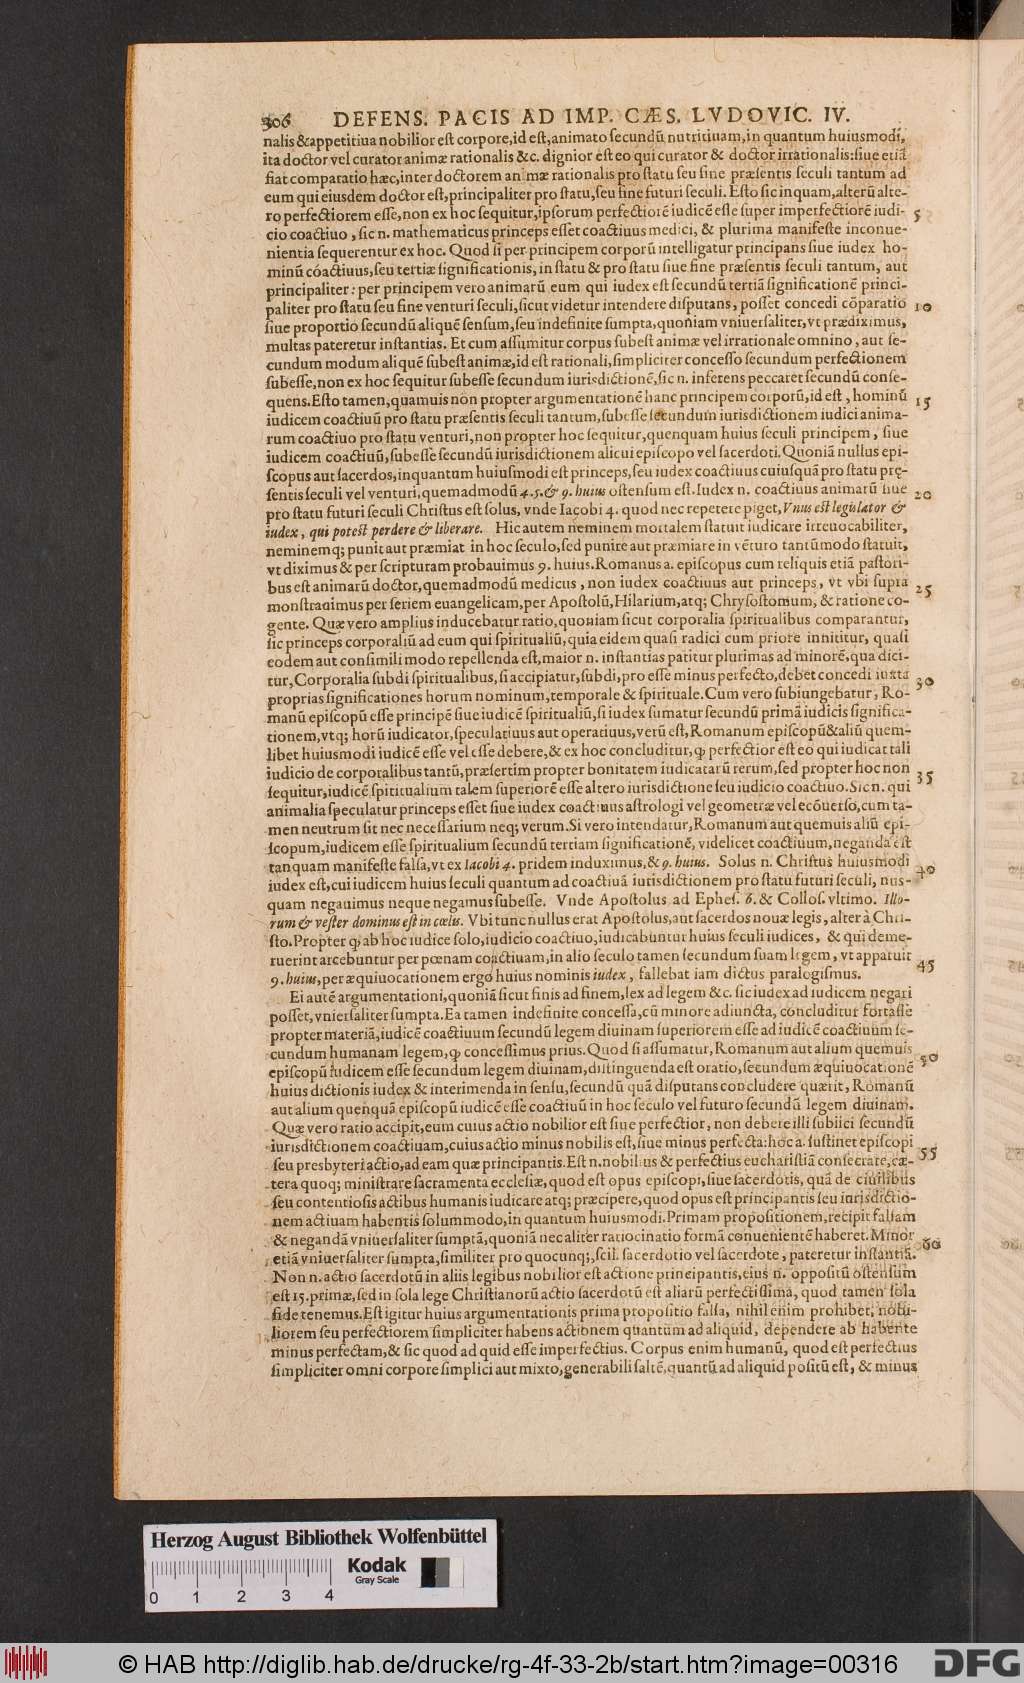 306 DEFENS. PACIS AD IMP. CÆS. LVDOVIC. IV.
nalis &appetitiua nobilior est corpore,id est,animato secundū nutritiuam,in quantum huiusmodi,
ita doctor vel curator animæ rationalis &c. dignior est eo qui curator & doctor irrationalis:siue etiā
fiat comparatio hæc,inter doctorem animæ rationalis pro statu seu fine præsentis seculi tantum ad
eum qui eiusdem doctor est,principaliter pro statu,seu fine futuri seculi. Esto sic inquam,alterū alte-
ro perfectiorem esse,non ex hoc sequitur,ipsorum perfectiorē iudicē esse super imperfectiorē iudi- 5
cio coactiuo , sic n. mathematicus princeps esset coactiuus medici, & plurima manifeste inconue-
nientia sequerentur ex hoc. Quod si per principem corporū intelligatur principans siue iudex ho-
minū coactiuus,seu tertiæ significationis, in statu & pro statu siue fine præsentis seculi tantum, aut
principaliter : per principem vero animarū eum qui iudex est secundū tertiā significationē princi-
paliter pro statu seu fine venturi seculi,sicut videtur intendere disputans , posset concedi cōparatio 10
siue proportio secundū aliquē sensum,seu indefinite sumpta,quoniam vniuersaliter,vt prædiximus,
multas pateretur instantias. Et cum assumitur corpus subest animæ vel irrationale omnino , aut se-
cundum modum aliquē subest animæ,id est rationali,simpliciter concesso secundum perfectionem
subesse,non ex hoc sequitur subesse secundum iurisdictionē,sic n. inferens peccaret secundū conse-
quens.Esto tamen,quamuis non propter argumentationē hanc principem corporū,id est , hominū 15
iudicem coactiuū pro statu præsentis seculi tantum,subesse secundum iurisdictionem iudici anima-
rum coactiuo pro statu venturi,non propter hoc sequitur,quenquam huius seculi principem , siue
iudicem coactiuū,subesse secundū iurisdictionem alicui episcopo vel sacerdoti.Quoniā nullus epi-
scopus aut sacerdos,inquantum huiusmodi est princeps,seu iudex coactiuus cuiusquā pro statu prę-
sentis seculi vel venturi,quemadmodū 4.5.& 9. huius ostensum est.Iudex n. coactiuus animarū siue 20
pro statu futuri seculi Christus est solus, vnde Iacobi 4. quod nec repetere piget,Vnus est legislator &
iudex, qui potest perdere & liberare. Hic autem neminem mortalem statuit iudicare irreuocabiliter,
neminemq; punit aut præmiat in hoc seculo,sed punire aut præmiare in vēturo tantūmodo statuit,
vt diximus & per scripturam probauimus 9. huius.Romanus a. episcopus cum reliquis etiā pastori-
bus est animarū doctor,quemadmodū medicus , non iudex coactiuus aut princeps, vt vbi supra 25
monstrauimus per seriem euangelicam,per Apostolū,Hilarium,atq; Chrysostomum, & ratione co-
gente. Quæ vero amplius inducebatur ratio,quoniam sicut corporalia spiritualibus comparantur,
sic princeps corporaliū ad eum qui spiritualiū,quia eidem quasi radici cum priore innititur, quasi
eodem aut consimili modo repellenda est,maior n. instantias patitur plurimas ad minorē,qua dici-
tur,Corporalia subdi spiritualibus,si accipiatur,subdi,pro esse minus perfecto,debet concedi iuxta 30
proprias significationes horum nominum,temporale & spirituale.Cum vero subiungebatur, Ro-
manū episcopū esse principē siue iudicē spiritualiū,si iudex sumatur secundū primā iudicis significa-
tionem,vtq; horū iudicator,speculatiuus aut operatiuus,verū est,Romanum episcopū&aliū quem-
libet huiusmodi iudicē esse vel esse debere,& ex hoc concluditur,q̨ perfectior est eo qui iudicat tali
iudicio de corporalibus tantū,præsertim propter bonitatem iudicatarū rerum,sed propter hoc non 35
sequitur,iudicē spiritualium talem superiorē esse altero iurisdictione seu iudicio coactiuo.Sic n. qui
animalia speculatur princeps esset siue iudex coactiuus astrologi vel geometræ vel ecōuerso,cum ta-
men neutrum sit nec necessarium neq; verum.Si vero intendatur,Romanum aut quemuis aliū epi-
scopum,iudicem esse spiritualium secundū tertiam significationē, videlicet coactiuum,neganda est
tanquam manifeste falsa,vt ex Iacobi 4. pridem induximus,& 9. huius. Solus n. Christus huiusmodi 40
iudex est,cui iudicem huius seculi quantum ad coactiuā iurisdictionem pro statu futuri seculi, nus-
quam negauimus neque negamus subesse. Vnde Apostolus ad Ephes. 6. & Collos. vltimo. Illo-
rum & vester dominus est in cœlis. Vbi tunc nullus erat Apostolus,aut sacerdos nouæ legis , alter à Chri-
sto.Propter q̨ ab hoc iudice solo,iudicio coactiuo,iudicabuntur huius seculi iudices, & qui deme-
ruerint arcebuntur per pœnam coactiuam,in alio seculo tamen secundum suam legem, vt apparuit 45
9. huius,per æquiuocationem ergo huius nominis iudex, fallebat iam dictus paralogismus.
Ei autē argumentationi,quoniā sicut finis ad finem,lex ad legem &c. sic iudex ad iudicem negari
posset,vniersaliter sumpta.Ea tamen indefinite concessa,cū minore adiuncta, concluditur fortasse
propter materiā,iudicē coactiuum secundū legem diuinam superiorem esse ad iudicē coactiuum se-
cundum humanam legem,q̨ concessimus prius.Quod si assumatur,Romanum aut alium quemuis 50
episcopū iudicem esse secundum legem diuinam,distinguenda est oratio,secundum æquiuocationē
huius dictionis iudex & interimenda in sensu,secundū quā disputans concludere quærit, Romanū
aut alium quenquā episcopū iudicē esse coactiuū in hoc seculo vel futuro secundū legem diuinam.
Quæ vero ratio accipit,eum cuius actio nobilior est siue perfectior, non debere illi subiici secundū
iurisdictionem coactiuam,cuius actio minus nobilis est,siue minus perfecta:hoc a. sustinet episcopi 55
seu presbyteri actio,ad eam quæ principantis.Est n.nobilius & perfectius eucharistiā consecrare,cæ-
tera quoq; ministrare sacramenta ecclesiæ, quod est opus episcopi,siue sacerdotis, quā de ciuilibus
seu contentiosis actibus humanis iudicare atq; præcipere,quod opus est principantis seu iurisdictio-
nem actiuam habentis solummodo,in quantum huiusmodi.Primam propositionem,recipit falsam
& negandā vniuersaliter sumptā,quoniā nec aliter ratiocinatio formā conuenientē haberet.Minor 60
etiā vniuersaliter sumpta,similiter pro quocunq;,scil. sacerdotio vel sacerdote, pateretur instantiā.
Non n.actio sacerdotū in aliis legibus nobilior est actione principantis,eius n. oppositū ostensum
est 15.primæ,sed in sola lege Christianorū actio sacerdotū est aliarū perfectissima, quod tamen sola
fide tenemus.Est igitur huius argumentationis prima propositio falsa, nihil enim prohibet, nobi-
liorem seu perfectiorem simpliciter habens actionem quantum ad aliquid, dependere ab habente
minus perfectam,& sic quod ad quid esse imperfectius. Corpus enim humanū, quod est perfectius
simpliciter omni corpore simplici aut mixto,generabili saltē,quantū ad aliquid positū est, & minus
Herzog August Bibliothek Wolfenbüttel
Kodak
Gray Scale
0 1 2 3 4
© HAB http://diglib.hab.de/drucke/rg-4f-33-2b/start.htm?image=00316
DFG